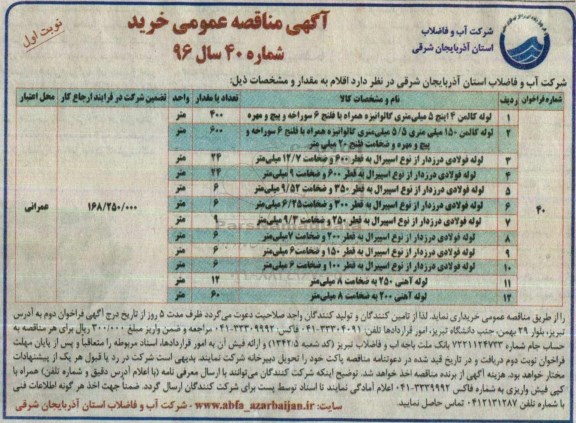 آگهی مناقصه عمومی خرید
شماره ۴۰ سال ۹۶
نوبت اول
شرکت آب و فاضلاب
استان آذربایجان شرقی
شرکت آب و فاضلاب استان آذربایجان شرقی در نظر دارد اقلام به مقدار و مشخصات ذیل:
شماره فراخوان ردیف نام و مشخصات کالا تعداد یا مقدار واحد تضمین شرکت در فرایند ارجاع کار محل اعتبار
۱ لوله کالمن ۴ اینچ ۵ میلی‌متری گالوانیزه همراه با فلنج ۶ سوراخه و پیچ و مهره ۴۰۰ متر
۲ لوله کالمن ۱۵۰ میلی متری ۵/۵ میلی‌متری گالوانیزه همراه با فلنج ۶ سوراخه و پیچ و مهره و ضخامت فلنج ۲۰ میلی متر ۶۰۰ متر
۳ لوله فولادی درزدار از نوع اسپیرال به قطر ۶۰۰ و ضخامت ۱۲/۷ میلی‌متر ۲۴ متر
۴ لوله فولادی درزدار از نوع اسپیرال به قطر ۶۰۰ و ضخامت ۹ میلی‌متر ۲۴ متر
۵ لوله فولادی درزدار از نوع اسپیرال به قطر ۳۵۰ و ضخامت ۹/۵۲ میلی‌متر ۶ متر
۶ لوله فولادی درزدار از نوع اسپیرال به قطر ۳۰۰ و ضخامت ۶/۲۵ میلی‌متر ۶ متر
۷ لوله فولادی درزدار از نوع اسپیرال به قطر ۲۵۰ و ضخامت ۹/۳ میلی‌متر ۹ متر
۸ لوله فولادی درزدار از نوع اسپیرال به قطر ۲۰۰ و ضخامت ۷ میلی‌متر ۶ متر
۹ لوله فولادی درزدار از نوع اسپیرال به قطر ۱۵۰ و ضخامت ۶ میلی‌متر ۶ متر
۱۰ لوله فولادی درزدار از نوع اسپیرال به قطر ۱۰۰ و ضخامت ۶ میلی‌متر ۶ متر
۱۱ لوله آهنی ۲۵۰ به ضخامت ۸ میلی‌متر ۱۲ متر
۱۲ لوله آهنی ۲۰۰ به ضخامت ۸ میلی‌متر ۶۰ متر
۴۰ ۱۶۸/۲۵۰/۰۰۰ عمرانی
را از طریق مناقصه عمومی خریداری نماید. لذا از تامین کنندگان و تولید کنندگان واجد صلاحیت دعوت می‌گردد ظرف مدت ۵ روز از تاریخ درج آگهی فراخوان دوم به آدرس
تبریز، بلوار ۲۹ بهمن، جنب دانشگاه تبریز، امور قراردادها تلفن ۳۳۳۰۴۰۹۱-۰۴۱ فاکس ۳۳۳۰۹۹۹۲-۰۴۱ مراجعه و ضمن واریز مبلغ ۳۰۰/۰۰۰ ریال برای هر مناقصه به
حساب جام شماره ۷۲۳۱۱۲۴۷۳۳ بانک ملت باجه آب و فاضلاب تبریز (کد شعبه ۱۳۴۲۵) و ارائه فیش آن به امور قراردادها، اسناد مربوطه را متعاقبا و پس از پایان مهلت
فراخوان نوبت دوم دریافت و در تاریخ قید شده در دعوتنامه مناقصه پاکت خود را تحویل دبیرخانه شرکت نمایند. بدیهی است شرکت در رد یا قبول هر یک از پیشنهادات
مختار خواهد بود. هزینه آگهی از برنده مناقصه اخذ خواهد شد. توضیح اینکه شرکت کنندگان می‌توانند با ارسال معرفی نامه (با اعلام آدرس دقیق و شماره تلفن) همراه با
کپی فیش واریزی به شماره فاکس ۳۳۳۰۹۹۹۲-۰۴۱ اعلام آمادگی نمایند تا اسناد توسط پست برای شرکت کنندگان ارسال گردد. ضمنا جهت اخذ هر گونه اطلاعات فنی
با شماره تلفن ۰۴۱۲۱۳۱۲۸۷ تماس حاصل نمایید
سایت: www.abfa_azarbaijan.ir - شرکت آب و فاضلاب استان آذربایجان شرقی